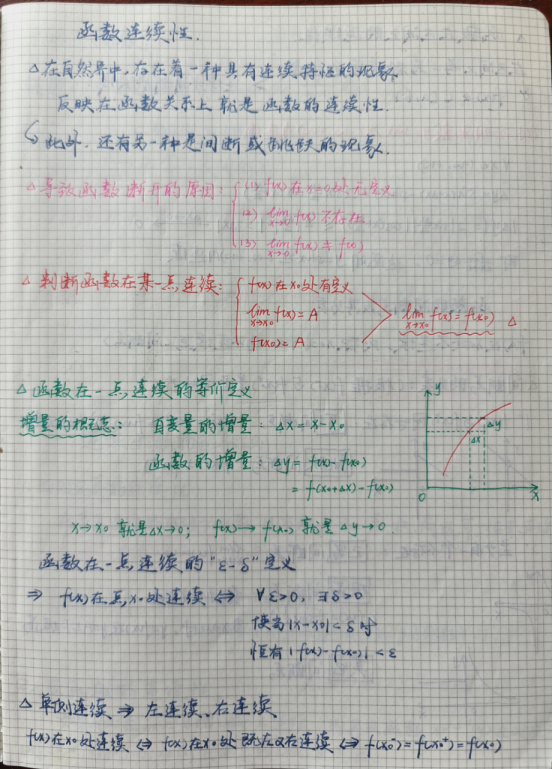 函数连续性.
△在自然界中,存在着一种具有连续特性的现象.
反映在函数关系上就是函数的连续性.
此外,还有另一种是间断或跳跃的现象.
△导致函数断开的原因: (1) f(x)在x=0处无定义
(2) lim x→0 f(x)不存在
(3) lim x→0 f(x)≠f(x)
△判断函数在某一点连续: f(x)在x₀处有定义
lim x→x₀ f(x)=A
f(x₀)=A
lim x→x₀ f(x)=f(x₀) △
△函数在一点连续的等价定义
增量的概念: 自变量的增量: Δx=x-x₀
函数的增量: Δy=f(x)-f(x₀)
=f(x₀+Δx)-f(x₀)
y
Δy
Δx
0
x
x→x₀ 就是Δx→0; f(x)→f(x₀) 就是Δy→0
函数在一点连续的"ε-δ"定义
⇒ f(x)在点x₀处连续 ⇔ ∀ε>0, ∃δ>0
使当|x-x₀|<δ时
恒有|f(x)-f(x₀)|<ε
△单侧连续⇒左连续、右连续
f(x)在x₀处连续⇔f(x)在x₀处既左又右连续⇔f(x₀⁻)=f(x₀⁺)=f(x₀)